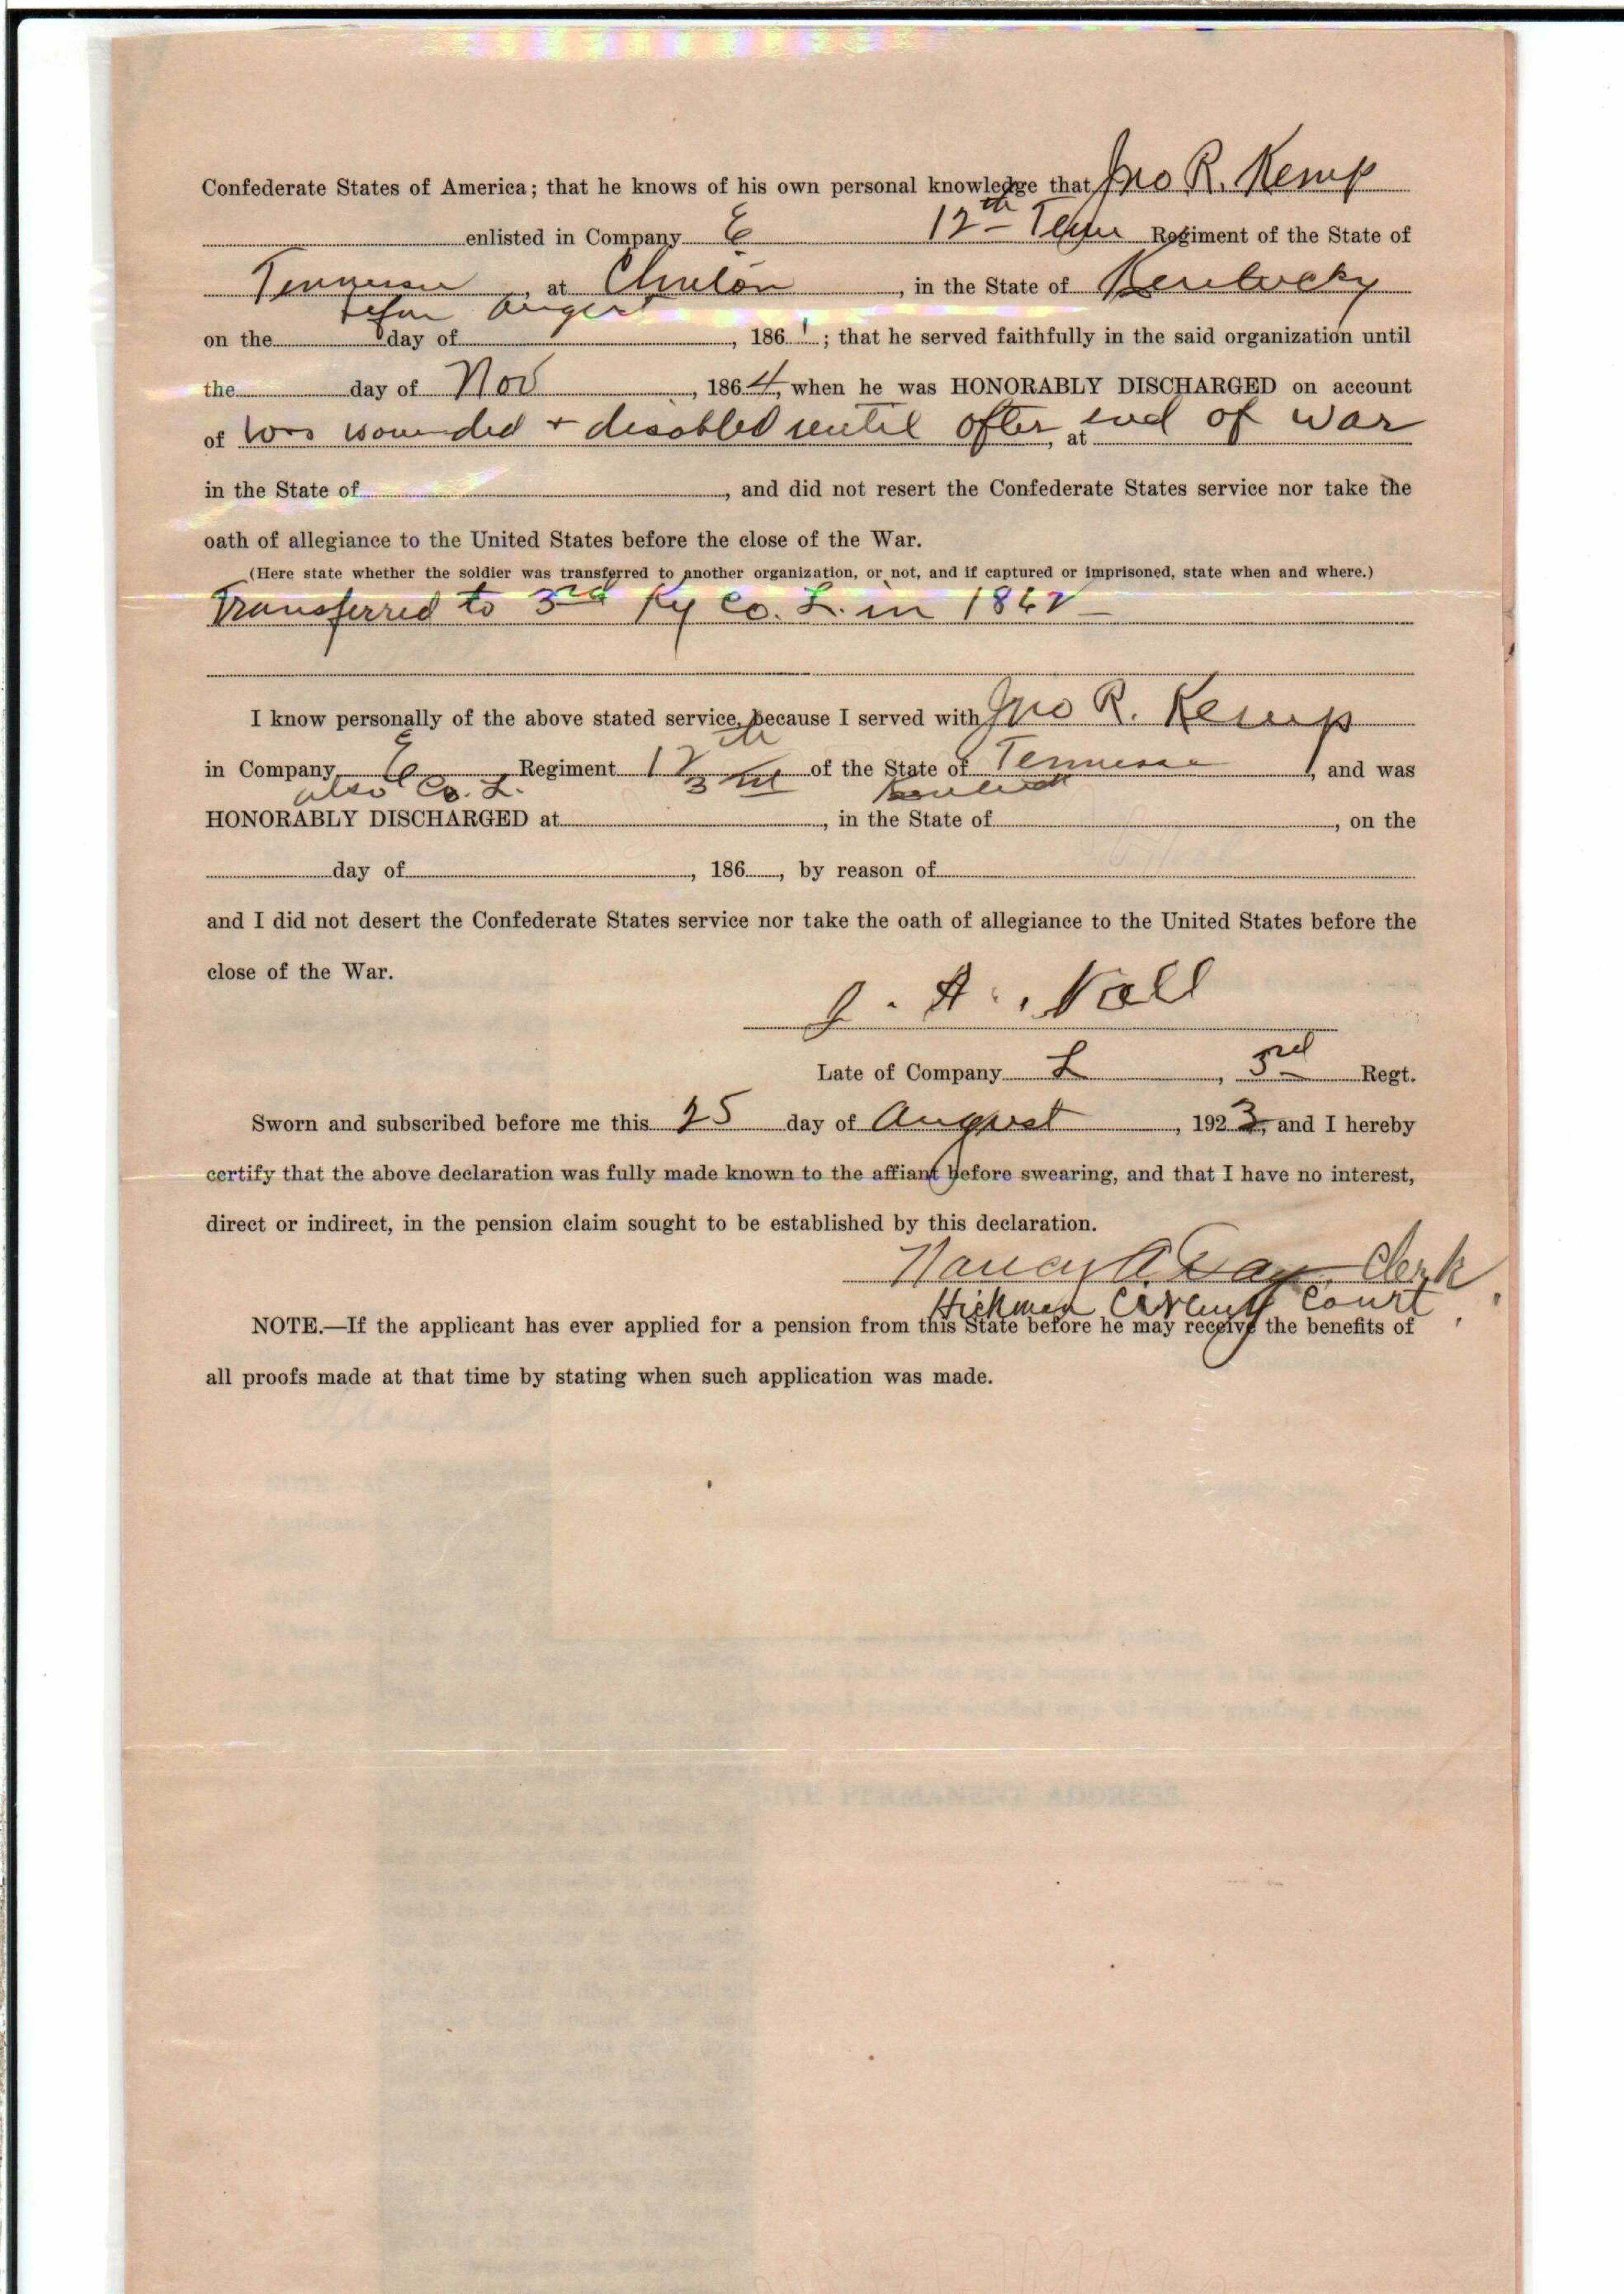 Confederate States of America; that he knows of his own personal knowledge that Jno R. Kemp
enlisted in Company E 12th Tenn Regiment of the State of
Tennessee, at Clinton, in the State of Kentucky
August
on the day of, 1861; that he served faithfully in the said organization until
the day of Nov, 1864, when he was HONORABLY DISCHARGED on account
of was wounded + disabled until after, at end of war
in the State of, and did not resert the Confederate States service nor take the
oath of allegiance to the United States before the close of the War.
(Here state whether the soldier was transferred to another organization, or not, and if captured or imprisoned, state when and where.)
Transferred to 3rd Ky Co. L. in 1862
I know personally of the above stated service, because I served with Jno R. Kemp
in Company E Regiment 12th of the State of Tennessee, and was
also Co. L. 3rd
HONORABLY DISCHARGED at, in the State of, on the
day of, 186, by reason of
and I did not desert the Confederate States service nor take the oath of allegiance to the United States before the
close of the War.
J. A. Nall
Late of Company L, 3rd Regt.
Sworn and subscribed before me this 25 day of August, 1923, and I hereby
certify that the above declaration was fully made known to the affiant before swearing, and that I have no interest,
direct or indirect, in the pension claim sought to be established by this declaration.
Nancy Clerk
Hickman County Court
NOTE.—If the applicant has ever applied for a pension from this State before he may receive the benefits of
all proofs made at that time by stating when such application was made.
GIVE PERMANENT ADDRESS